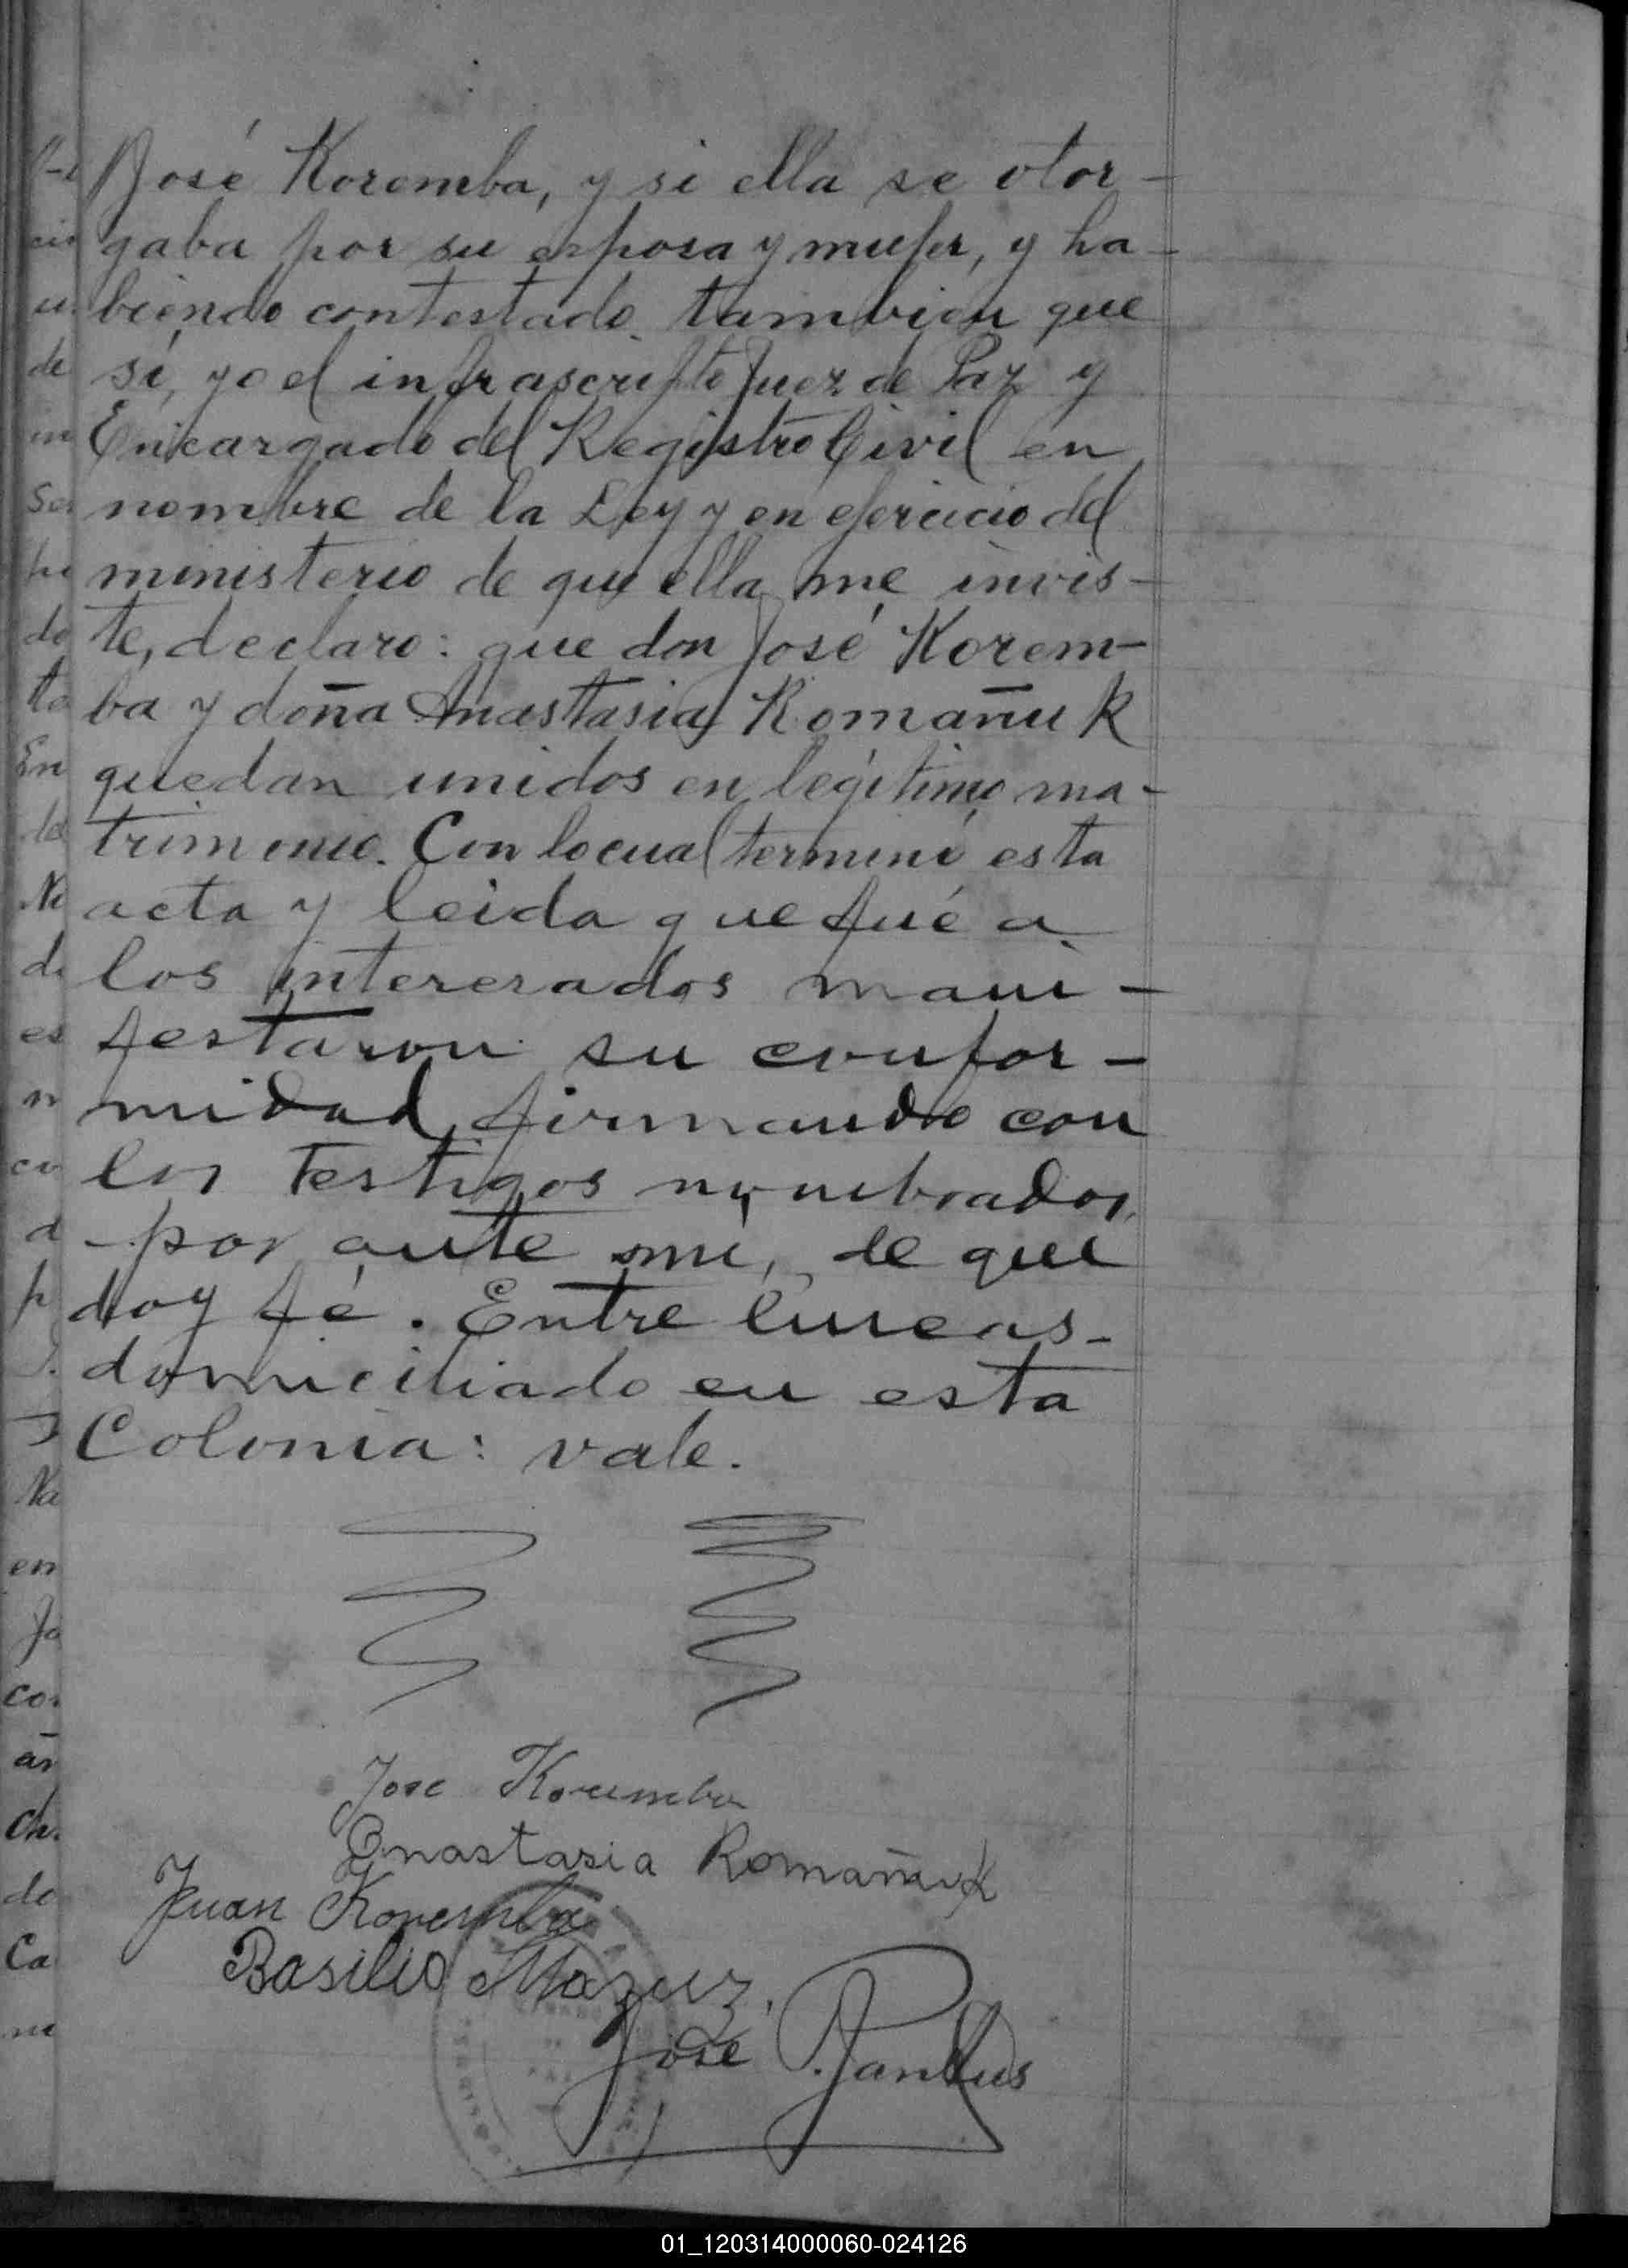 José Koremba, y si ella se otor-
gaba por su esposa y mujer, y ha-
biendo contestado tambien que
sí, yo el infrascripto Juez de Paz y
Encargado del Registro Civil en
nombre de la Ley y en ejercicio del
ministerio de que ella me invis-
te, declaro: que don José Korem-
ba y doña Anastasia Romañuk
quedan unidos en legítimo ma-
trimonio. Con lo cual terminó esta
acta y leida que fué a
los interesados mani-
festaron su confor-
midad, firmando con
los testigos nombrados
por ante mi, de que
doy fé. Entre lineas-
domiciliado en esta
Colonia: vale.
Jose Korumba
Anastasia Romañuk
Juan Koremba
Basilio Mazur,
José
01_120314000060-024126